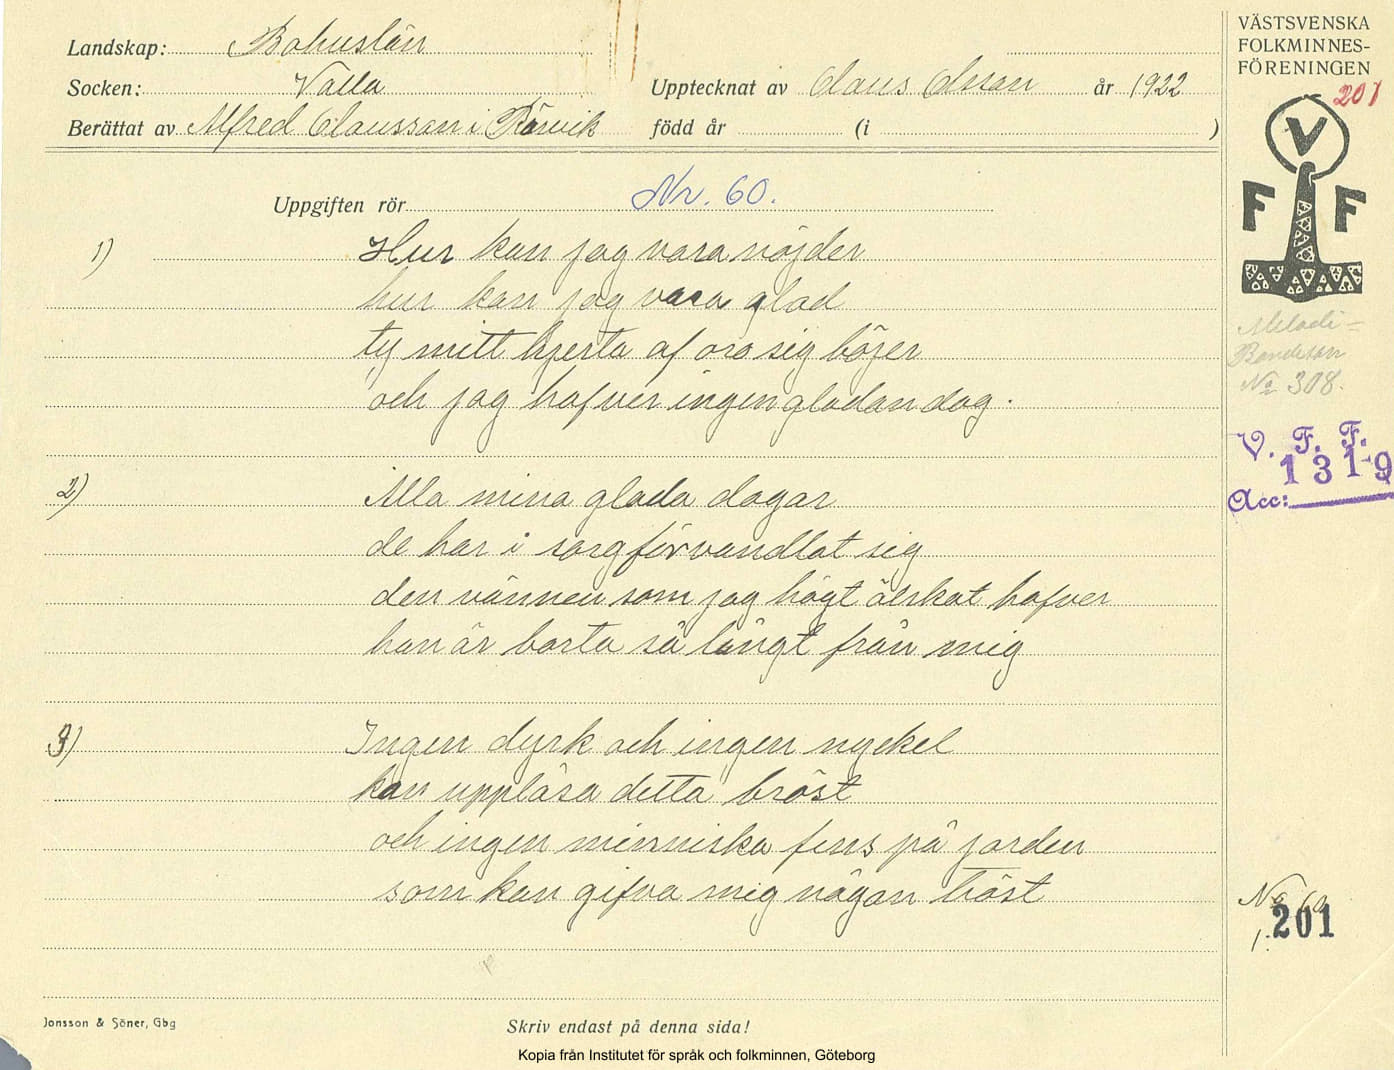 Landskap: Bohuslän
Socken: Valla
Berättat av Alfred Claussson i Rörvik
Upptecknat av Claus Olsson år 1922
född år (i )
VÄSTSVENSKA
FOLKMINNES-
FÖRENINGEN
201
V
F F
Uppgiften rör Nr. 60.
1) Hur kan jag vara nöjder
hur kan jag vara glad
ty mitt hjerta af oro sig böjer
och jag hafver ingen gladan dag.
Melodi=
No 308.
V. F. F.
1319
Acc:
2) Alla mina glada dagar
de har i sorg förvandlat sig
den vännen som jag högt älskat hafver
han är borta så långt från mig
3) Ingen dyrk och ingen nyckel
kan upplåsa detta bröst
och ingen menniska fins på jorden
som kan gifva mig någon tröst
No 60
1. 201
Jonsson & Söner, Gbg
Skriv endast på denna sida!
Kopia från Institutet för språk och folkminnen, Göteborg